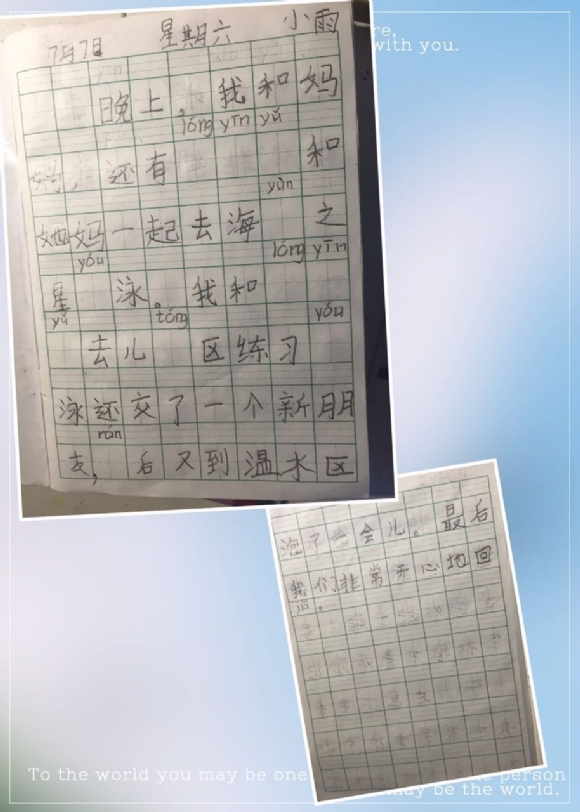 re,
with you.
7月7日 星期六 小雨
晚上，我和妈
lóng yīn yǔ
妈，还有 和
yùn
她妈一起去海 之
yóu lóng yīn
星 泳。我和
yǔ tóng yóu
去儿 区练习
泳还交了一个新朋
rán
友， 后又到温水区
泡了一会儿。最后
我们非常开心地回
To the world you may be one person
may be the world.